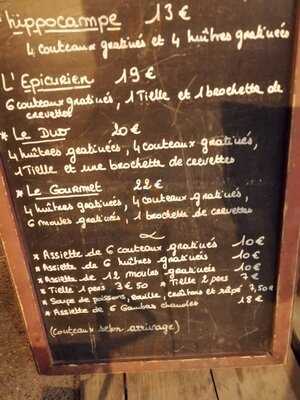 hippocampe 13 €
4 couteaux gratinés et 4 huîtres gratinées
L'Epicurien 19 €
6 couteaux gratinés, 1 Tielle et 1 brochette de
crevettes
* Le Duo 20 €
4 huîtres gratinées, 4 couteaux gratinés,
1 Tielle et une brochette de crevettes
* Le Gourmet 22 €
4 huîtres gratinées, 4 couteaux gratinés,
6 moules gratinés, 1 brochette de crevettes
* Assiette de 6 couteaux gratinés 10 €
* Assiette de 6 huîtres gratinées 10 €
* Assiette de 12 moules gratinées 10 €
* Tielle 1 pers 3 € 50 * Tielle 2 pers 7 €
* Soupe de poissons, rouille, croûtons et râpé 7,50 €
* Assiette de 6 Gambas chaudes 18 €
(couteaux selon arrivage)